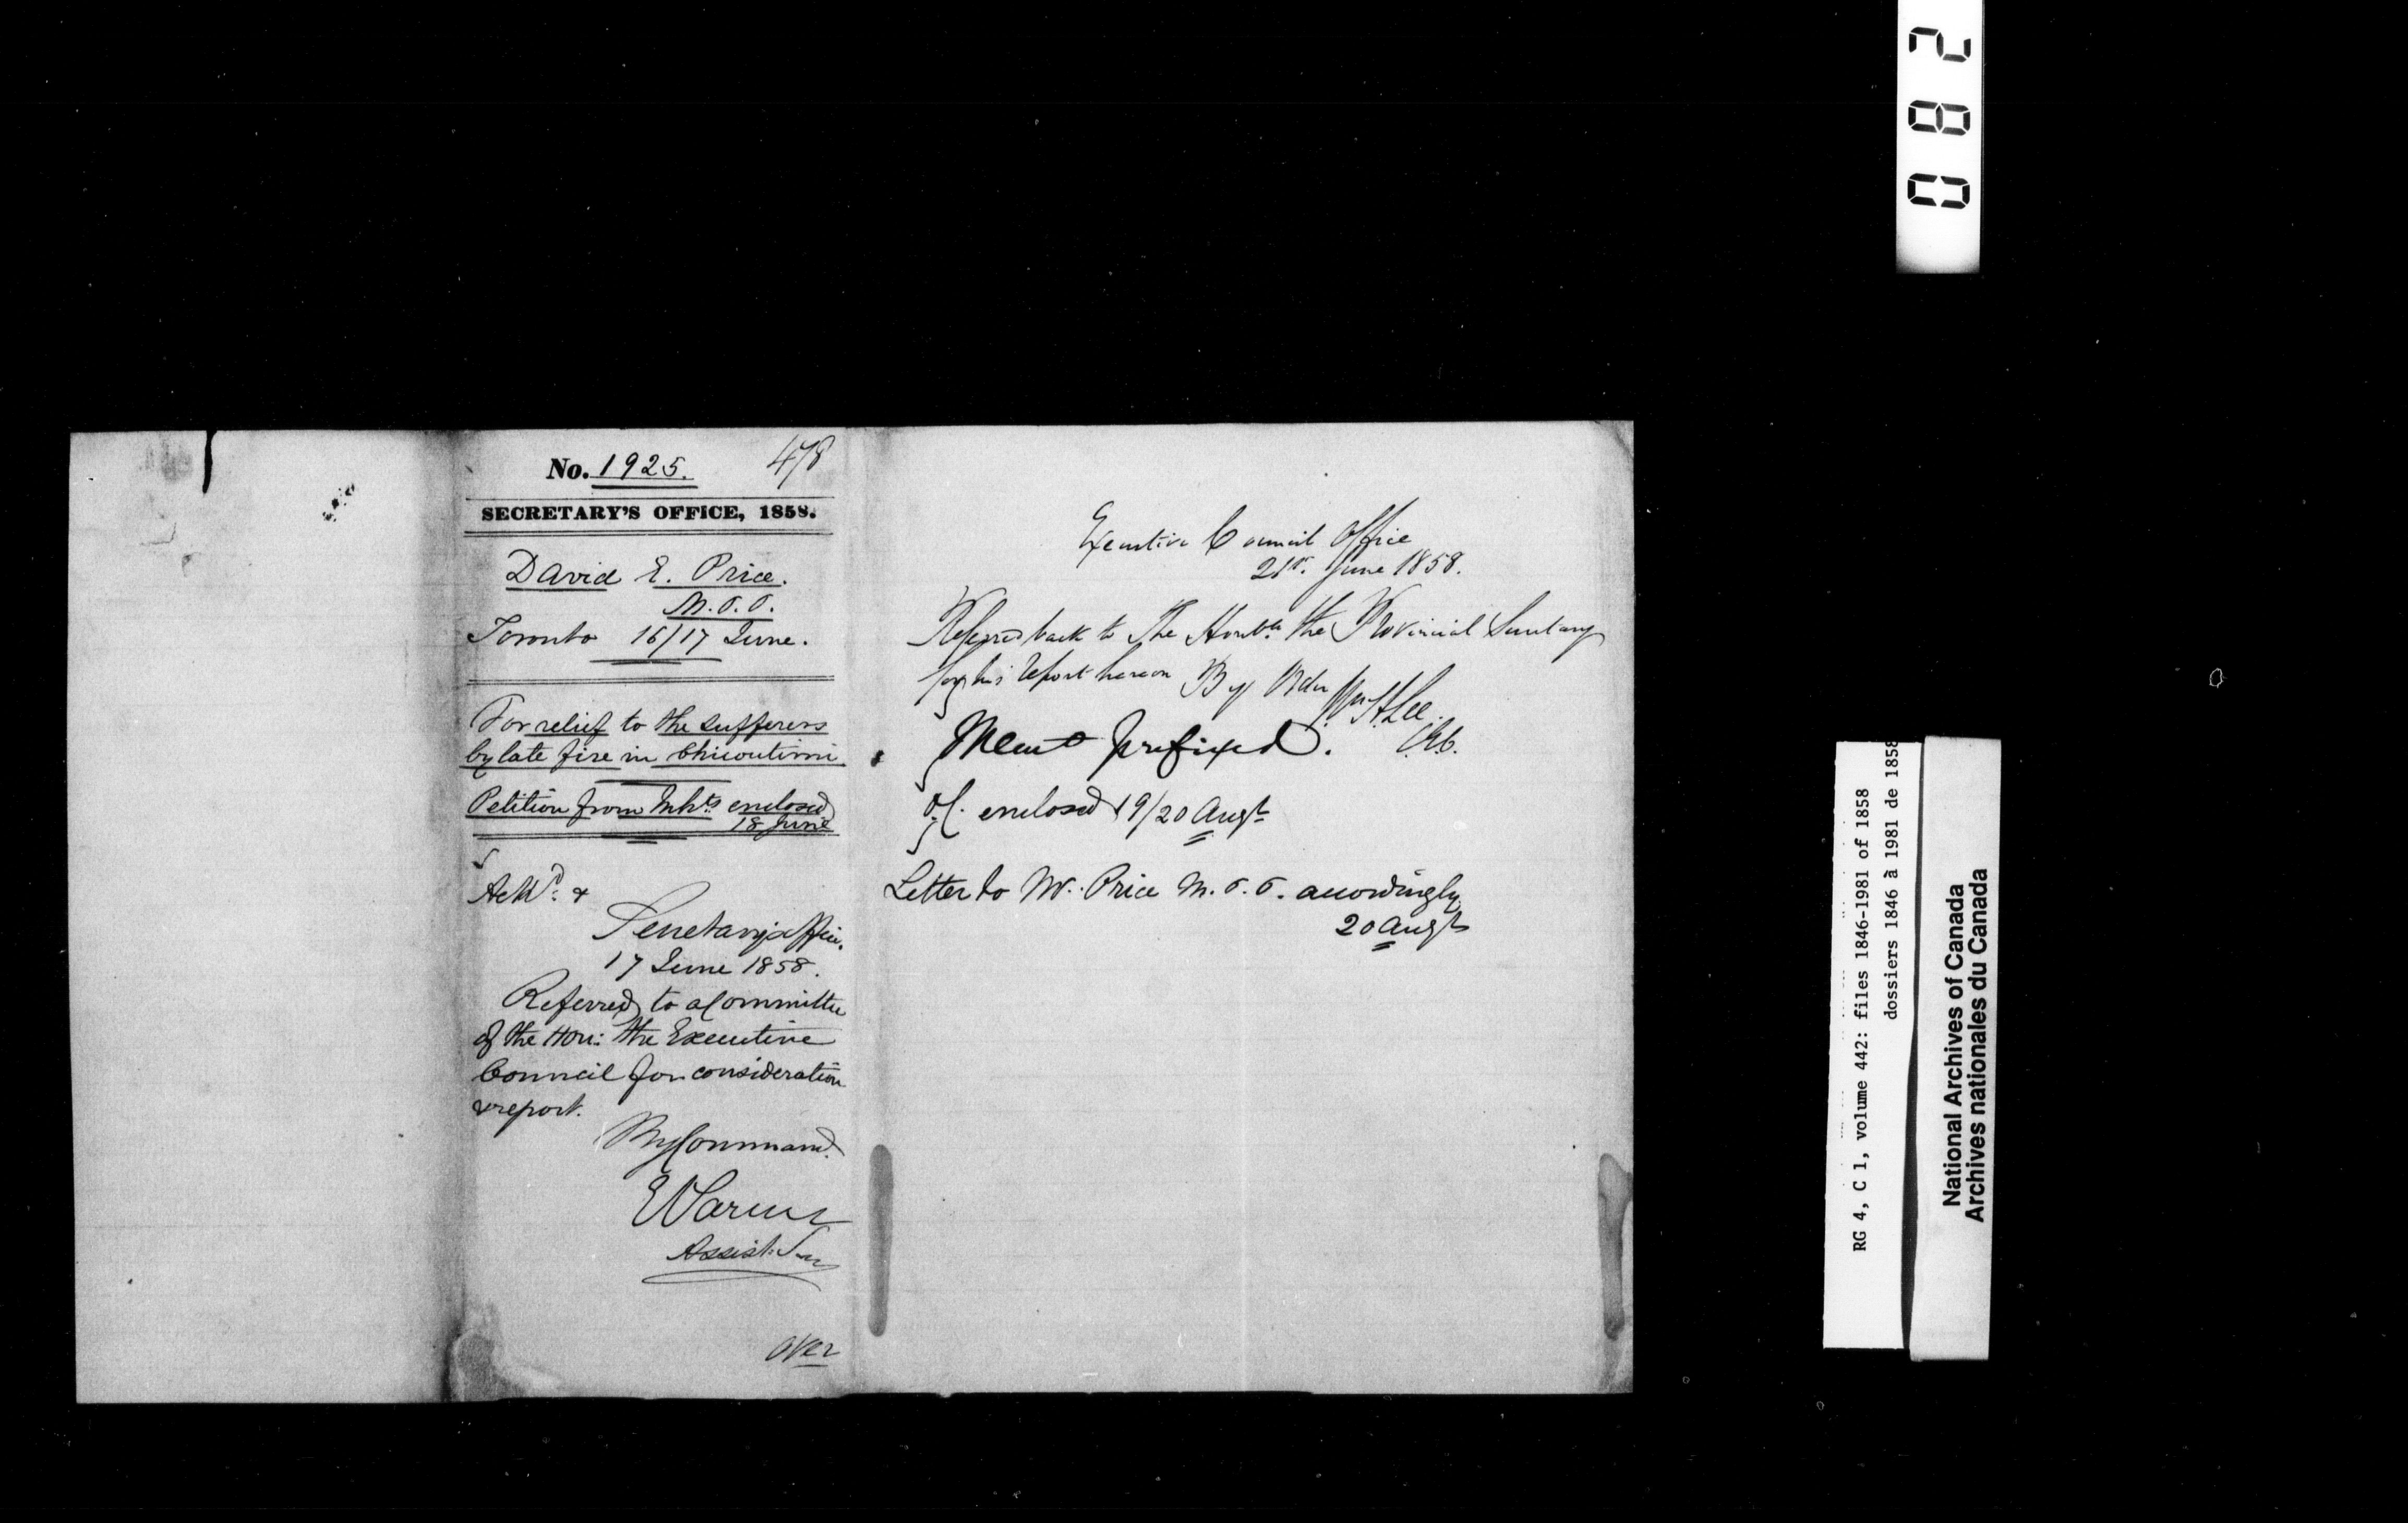 No. 1925. 478
SECRETARY'S OFFICE, 1858.
David E. Price.
M.P.P.
Toronto 16/17 June.
For relief to the sufferers
by late fire in Chicoutimi
Petition from Inhts. enclosed
18 June
Ackd. &
Secretary's Office.
17 June 1858.
Referred to a Committee
of the Hon: the Executive
Council for consideration
& report.
By Command.
Assist. Secy
over
Executive Council Office
21st. June 1858.
Referred back to The Honble. the Provincial Secretary
for his report hereon By Order Wm. H. Lee
C.E.C.
Memo prefixed.
O.C. enclosed 19/20 Augt
Letter to Mr. Price M.P.P. accordingly
20 Augt
082
RG 4, C 1, volume 442: files 1846-1981 of 1858
dossiers 1846 à 1981 de 1858
National Archives of Canada
Archives nationales du Canada